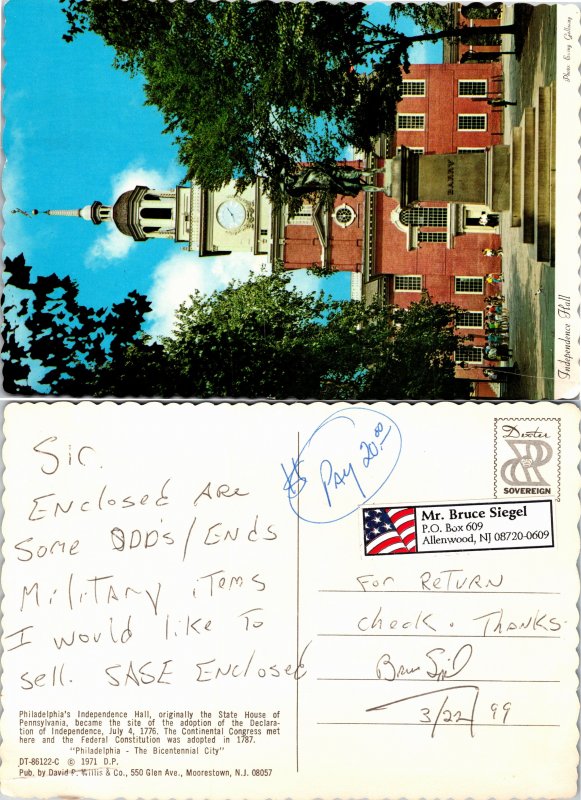 Photo: Ewing Galloway
BARRY
Independence Hall
Sir.
Enclosed Are
Some ODD's/Ends
Military items
I would like To
sell. SASE Enclosed
Philadelphia's Independence Hall, originally the State House of
Pennsylvania, became the site of the adoption of the Declara-
tion of Independence, July 4, 1776. The Continental Congress met
here and the Federal Constitution was adopted in 1787.
"Philadelphia - The Bicentennial City"
DT-86122-C © 1971 D.P.
Pub. by David P. Willis & Co., 550 Glen Ave., Moorestown, N.J. 08057
$ PAY 20.00
Dexter
SOVEREIGN
Mr. Bruce Siegel
P.O. Box 609
Allenwood, NJ 08720-0609
For Return
check. Thanks.
3/22/99